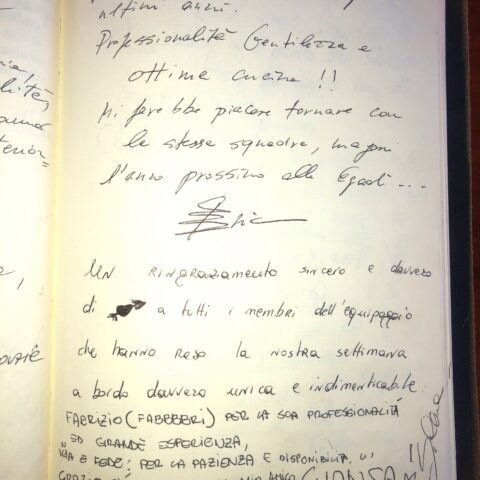 ultimi anni.
Professionalità Gentilezza e
ottima cucina !!
Mi farebbe piacere tornare con
la stessa squadra, magari
l'anno prossimo alle Egadi...
UN RINGRAZIAMENTO sincero e davvero
di a tutti i membri dell'equipaggio
che hanno reso la nostra settimana
a bordo davvero unica e indimenticabile
FABRIZIO (FABBBERI) PER LA SUA PROFESSIONALITÀ
GRANDE ESPERIENZA,
E FEDE! PER LA PAZIENZA E DISPONIBILITÀ
AMICO